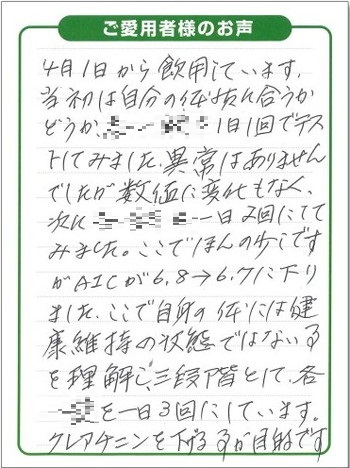 ご愛用者様のお声
4月1日から飲用しています。
当初は自分の体技に合うか
どうか、1日1回でテス
トしてみました、異常はありません
でしたが数値に変化もなく、
次に一日2回にてて
みました。ここでほんの少しです
がA1Cが6.8→6.7に下り
ました、ここで自身の体には健
康維持の状態ではない事
を理解し、三段階として、各
を一日3回にしています。
クレアチニンを下げる事が目的です